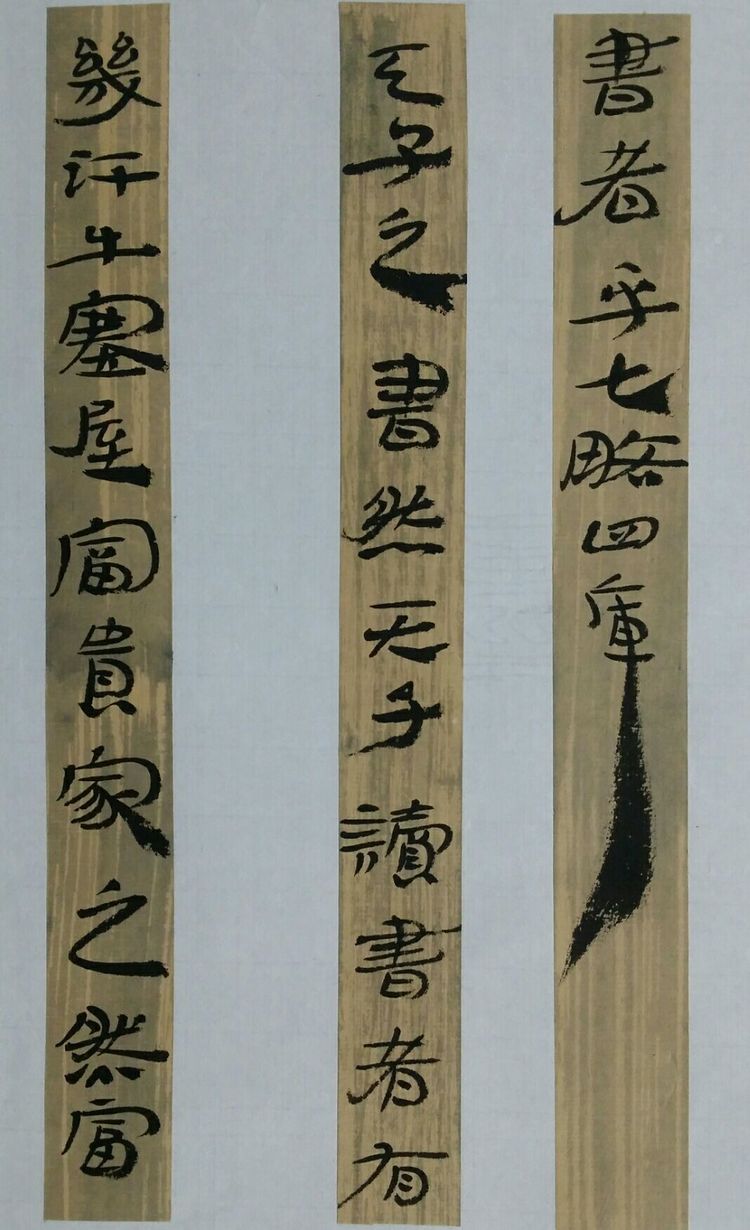 書者乎七略四庫
天子之書然天子讀書者有
幾汗牛塞屋富貴家之然富